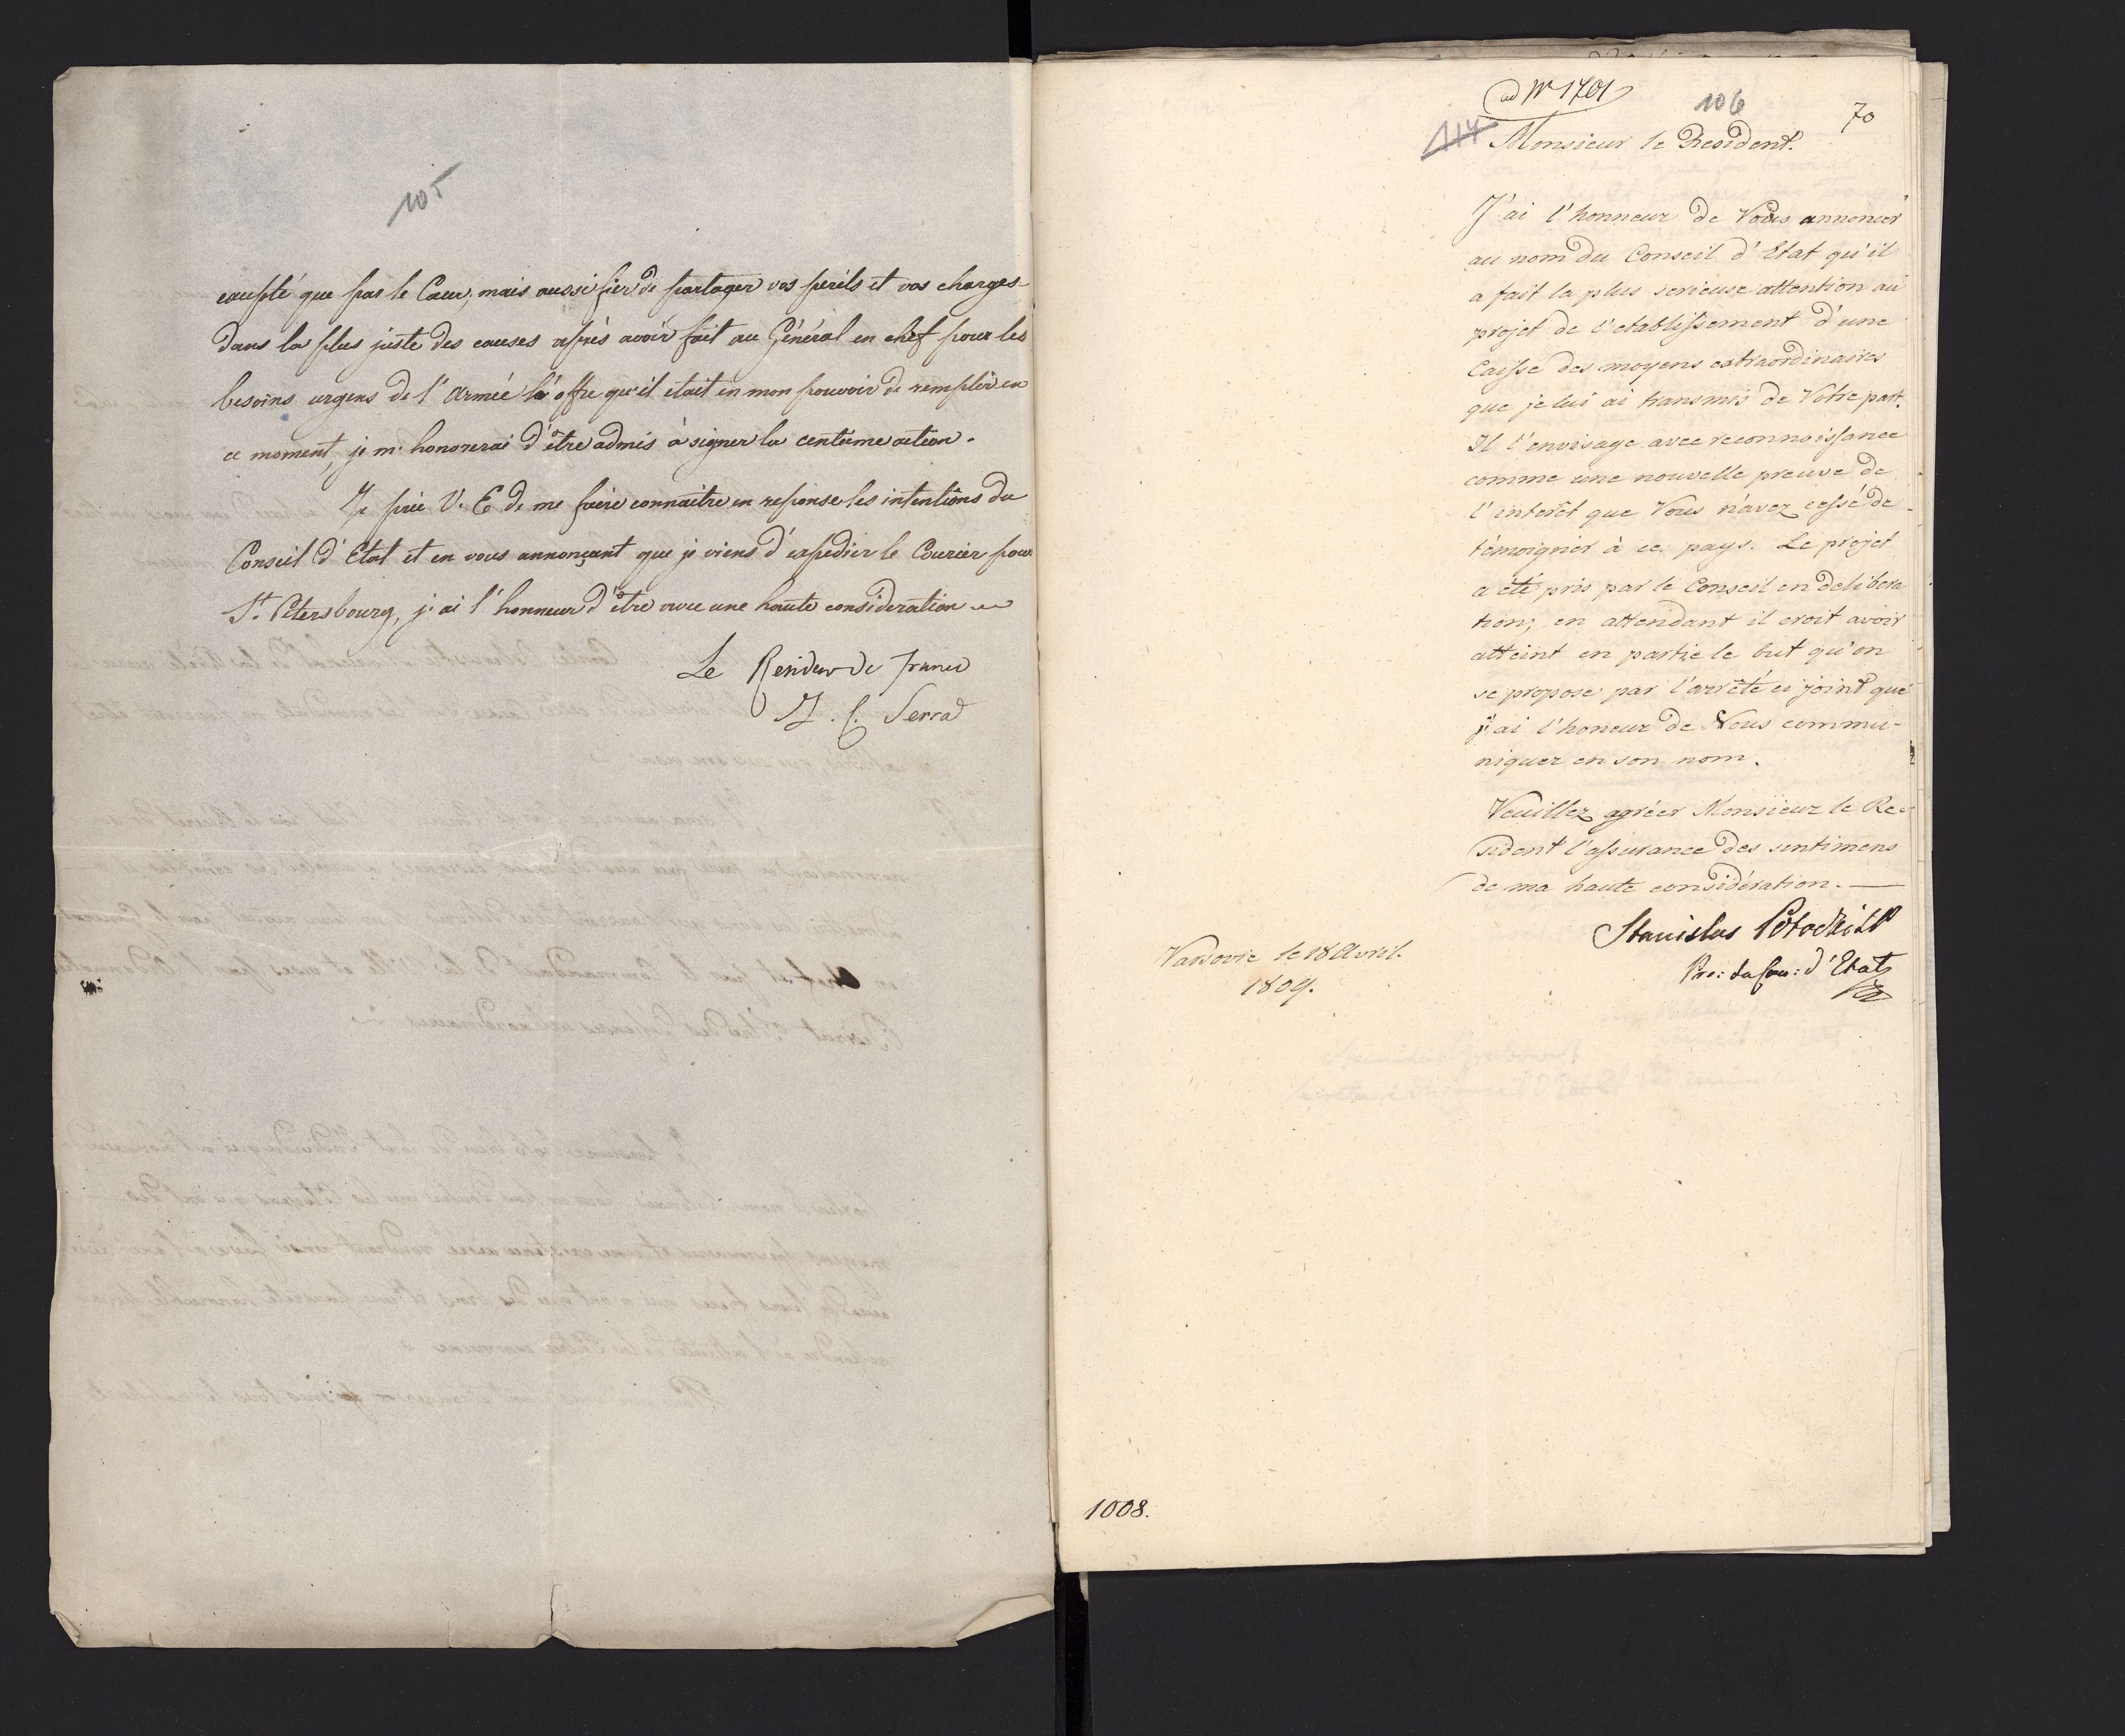 105
compté que par le Cœur, mais aussi fier de partager vos perils et vos charges
dans la plus juste des causes après avoir fait au Général en chef pour les
besoins urgens de l'Armée l'offre qu'il était en mon pouvoir de remplir en
ce moment, je m'honorerai d'être admis à signer la centième action.
Je prie V. E de me faire connaitre en reponse les intentions du
Conseil d'Etat et en vous annonçant que je viens d'expedier le Courier pour
St. Petersbourg, j'ai l'honneur d'être avec une haute consideration
Le Resident de France
J. C. Serra
ad Nr 1701
106
70
114
Monsieur le Resident.
J'ai l'honneur de Vous annoncer
au nom du Conseil d'Etat qu'il
a fait la plus serieuse attention au
projet de l'etablissement d'une
Caisse des moyens extraordinaires
que je lui ai transmis de Votre part.
Il l'envisage avec reconnoissance
comme une nouvelle preuve de
l'interêt que Vous n'avez cessé de
témoigner à ce pays. Le projet
a été pris par le Conseil en delibera
tion; en attendant il croit avoir
atteint en partie le but qu'on
se propose par l'arrêté ci joint que
j'ai l'honeur de Vous commu-
niquer en son nom.
Veuillez agréer Monsieur le Re-
sident l'assurance des sentimens
de ma haute considération.
Stanislas Potocki
Pre: du Con: d'Etat
Varsovie le 18 Avril.
1809.
1008.